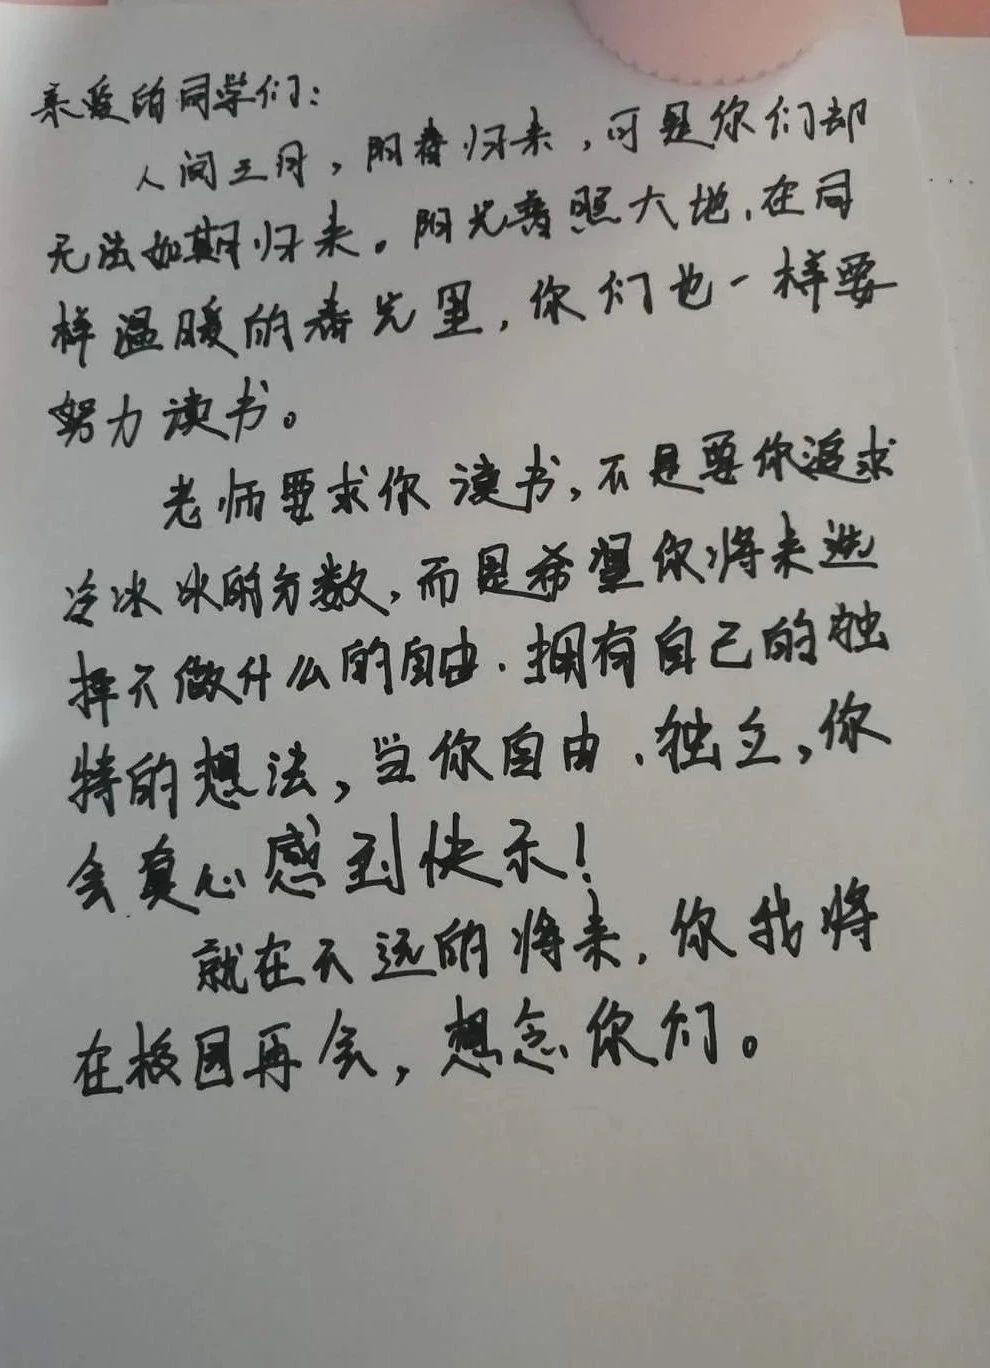 亲爱的同学们：
人间三月，阳春归来，可是你们却
无法如期归来。阳光普照大地，在同
样温暖的春光里，你们也一样要
努力读书。
老师要求你读书，不是要你追求
冷冰冰的分数，而是希望你将来选
择不做什么的自由、拥有自己的独
特的想法，当你自由、独立，你
会真心感到快乐！
就在不远的将来，你我将
在校园再会，想念你们。